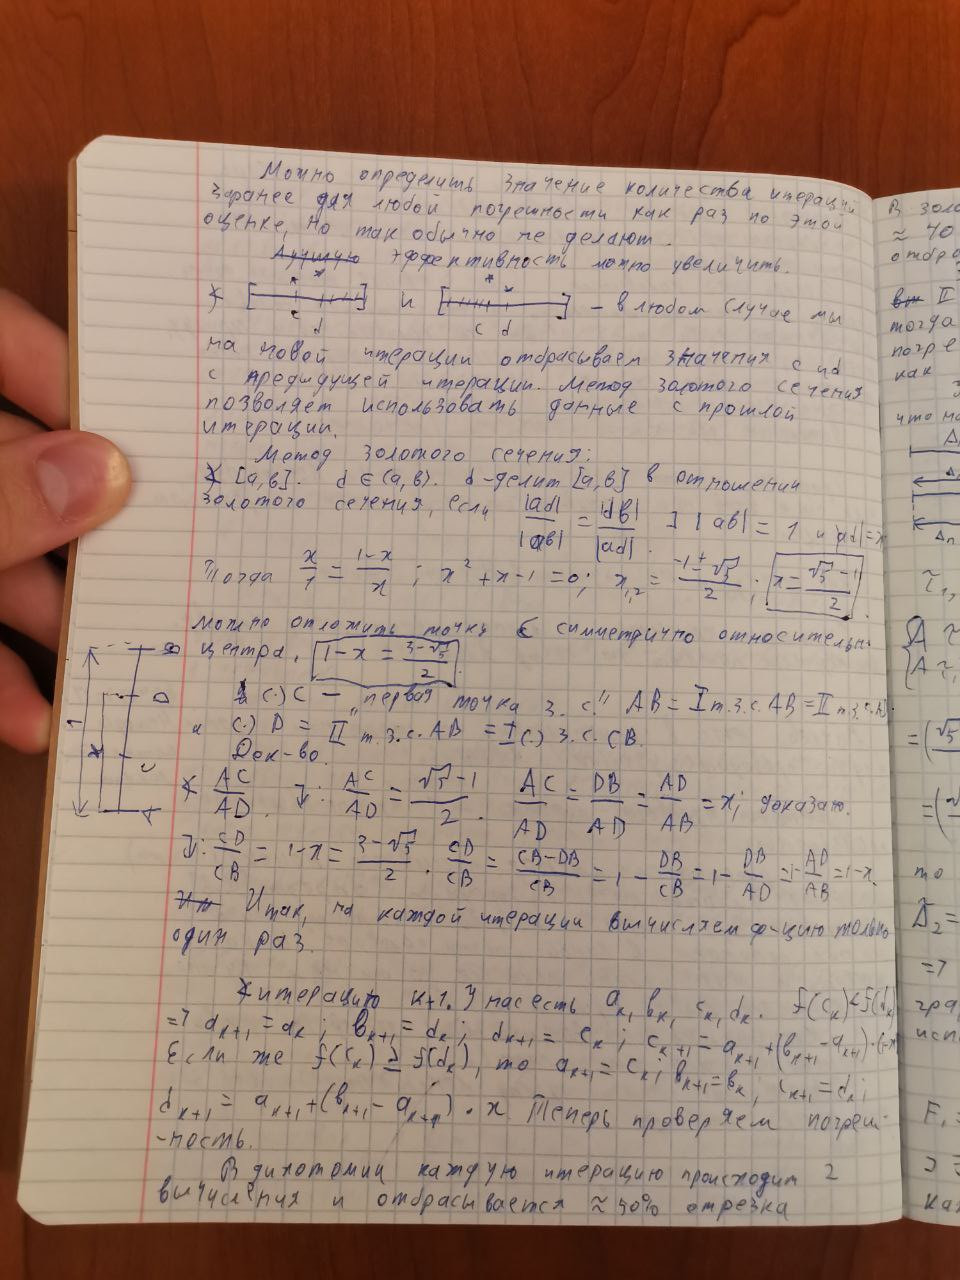 Можно определить значение количества итераций
заранее для любой погрешности как раз по этой
оценке, но так обычно не делают.
Лучшую эффективность можно увеличить.
[ ] и [ ] – в любом случае мы
c d c d
на новой итерации отбрасываем значения c и d
с предидущей итерации. Метод золотого сечения
позволяет использовать данные с прошлой
итерации.
Метод золотого сечения:
[a,b]. d ∈ (a,b). d - делит [a,b] в отношении
золотого сечения, если |ad|/|ab| = |db|/|ad|. ] |ab| = 1 и |ad| = x
Тогда x/1 = (1-x)/x ; x² + x - 1 = 0; x₁,₂ = (-1 ± √5)/2 ; x = (√5 - 1)/2
Можно отложить точку C симметрично относительно
центра. 1 - x = (3-√5)/2
(·) C – "первая точка з. с." AB = I т.з.с. AB = II т.з.с.
и (·) D = II т.з.с. AB = I (·) з.с. CB.
Док-во.
B
D
1
x
C
A
AC/AD. AC/AD = (√5 - 1)/2. AC/AD = DB/AD = AD/AB = x; доказано.
CD/CB = 1-x = (3-√5)/2. CD/CB = (CB-DB)/CB = 1 - DB/CB = 1 - DB/AD = 1 - AD/AB = 1-x.
Итак, на каждой итерации вычисляем ф-цию только
один раз.
итерацию k+1. У нас есть aₖ, bₖ, cₖ, dₖ. f(cₖ) < f(dₖ)
=> aₖ₊₁ = aₖ; bₖ₊₁ = dₖ; dₖ₊₁ = cₖ; cₖ₊₁ = aₖ₊₁ + (bₖ₊₁ - aₖ₊₁)·(1-x)
Если же f(cₖ) ≥ f(dₖ), то aₖ₊₁ = cₖ; bₖ₊₁ = bₖ; cₖ₊₁ = dₖ;
dₖ₊₁ = aₖ₊₁ + (bₖ₊₁ - aₖ₊₁) · x. Теперь проверяем погреш-
-ность.
В дихотомии каждую итерацию происходит 2
вычисления и отбрасывается ≈ 50% отрезка
В золо
≈ 40
отбра
II
тогда
погре
как
что на